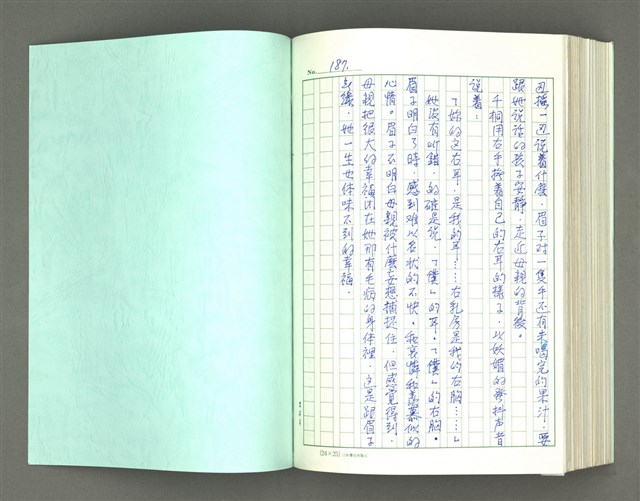 No. 187.
丑擔一边説着什麼．眉子对一隻手还有未喝完的果汁．要
跟她説话的孩子安静．走近母親的背後。
千桐用右手捂着自己的右耳的樣子．以妖媚的發抖声音
説着：
「妳的这右耳．是我的耳……右乳房是我的右胸……」
她没有听錯．的確是说．「僕」的耳．「僕」的右胸。
眉子明白了時．感到难以名状的不快。和哀憐和羨慕似的
心情。眉子不明白母親被什麼妄想捕捉住．但感覺得到．
母親把很大的幸福闭在她那有毛病的身体裡．这是跟眉子
無緣．她一生也体味不到的幸福．
(24×25)